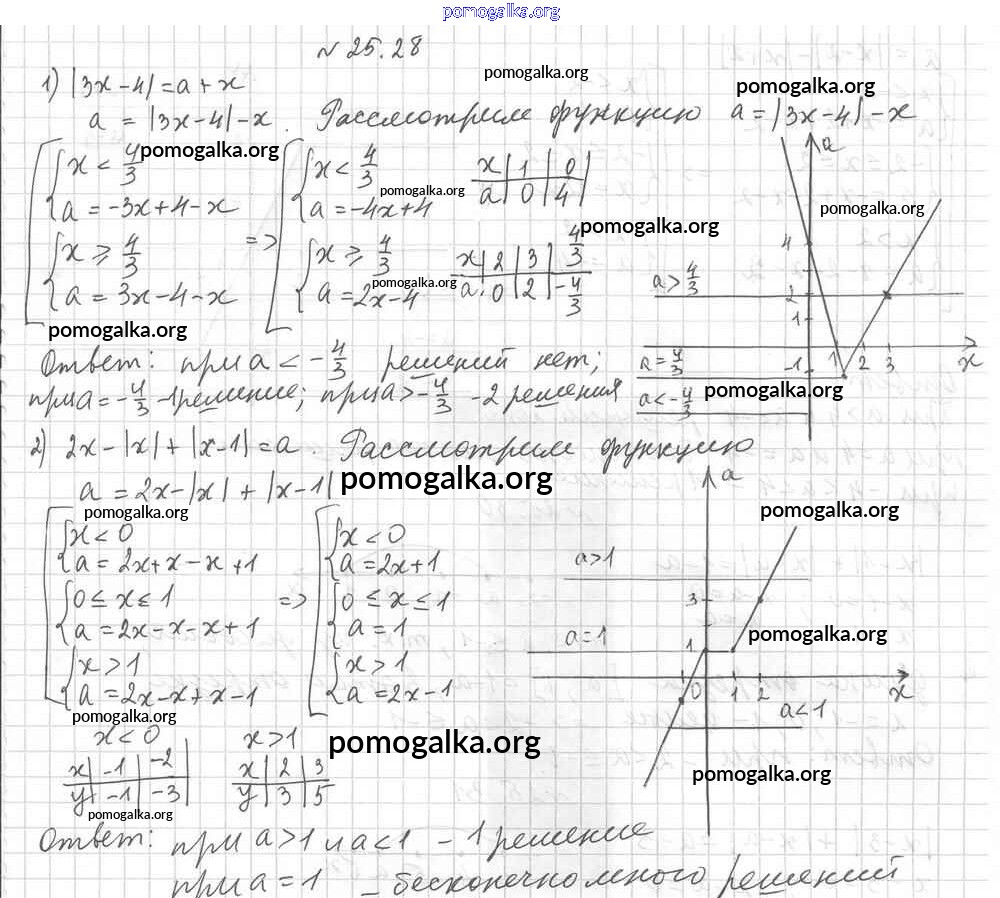 pomogalka.org
№ 25.28
1) |3x-4|=a+x pomogalka.org
a = |3x-4|-x. Рассмотрим функцию a=|3x-4|-x
pomogalka.org
{x < 4/3 pomogalka.org
{a = -3x+4-x
{x ≥ 4/3
{a = 3x-4-x
pomogalka.org
=>
{x < 4/3
{a = -4x+4
pomogalka.org
x | 1 | 0
a | 0 | 4
{x ≥ 4/3
{a = 2x-4
pomogalka.org
pomogalka.org
x | 2 | 3 | 4/3
a | 0 | 2 | -4/3
a
pomogalka.org
4
a > 4/3
2
1
a = 4/3
-1 1 2 3 x
pomogalka.org
a < -4/3
Ответ: при a < -4/3 решений нет;
при a = -4/3 - 1 решение; при a > -4/3 - 2 решения
2) 2x-|x|+|x-1|=a. Рассмотрим функцию
a = 2x-|x|+|x-1| pomogalka.org
pomogalka.org
{x < 0
{a = 2x+x-x+1
{0 ≤ x ≤ 1
{a = 2x-x-x+1
{x > 1
{a = 2x-x+x-1
=>
{x < 0
{a = 2x+1
{0 ≤ x ≤ 1
{a = 1
{x > 1
{a = 2x-1
a
pomogalka.org
a > 1
3
a = 1
1
pomogalka.org
0 1 2 x
a < 1
pomogalka.org
pomogalka.org
x < 0
x | -1 | -2
y | -1 | -3
pomogalka.org
x > 1
x | 2 | 3
y | 3 | 5
pomogalka.org
Ответ: при a > 1 и a < 1 - 1 решение
при a = 1 - бесконечно много решений